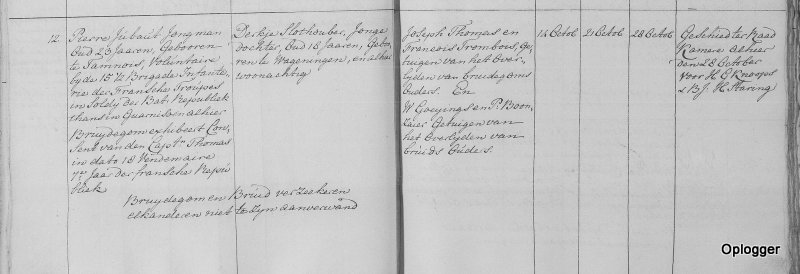 12.
Pierre Jubaut, Jongman
Oud 23 Jaaren, Gebooren
te Jamnois, Voluntaire
by de 15de Brigade Infante,
rie der Fransche Troupes
in Soldy des Bat: Republiek
thans in Guarnisoen alhier
Bruydegom exhibeert Con,
sent van den Captn Thomas
in dato 18 Vendemaire
7e Jaar der fransche Repu
bliek
Bruydegom en Bruid verzeekeren
elkanderen niet te zyn aanverwand
Derkje Slothouber, Jonge
dochter, Oud 18 Jaaren, Geboo,
ren te Wageningen, en alhier
woonachtig
Joseph Thomas en
Francois Trombois, Ge,
tuigen van het Over,
lyden van bruidegoms
Ouders. En
W Goeyings en Pr. Boon,
zaier Getuigen van
het Overlyden van
bruids Ouders.
14 Octob
21 Octob
28 Octob
Geschied ter Raad
Kamer alhier
den 28 October
voor H. E Knoops
& B. J. H. Staring
Oplogger